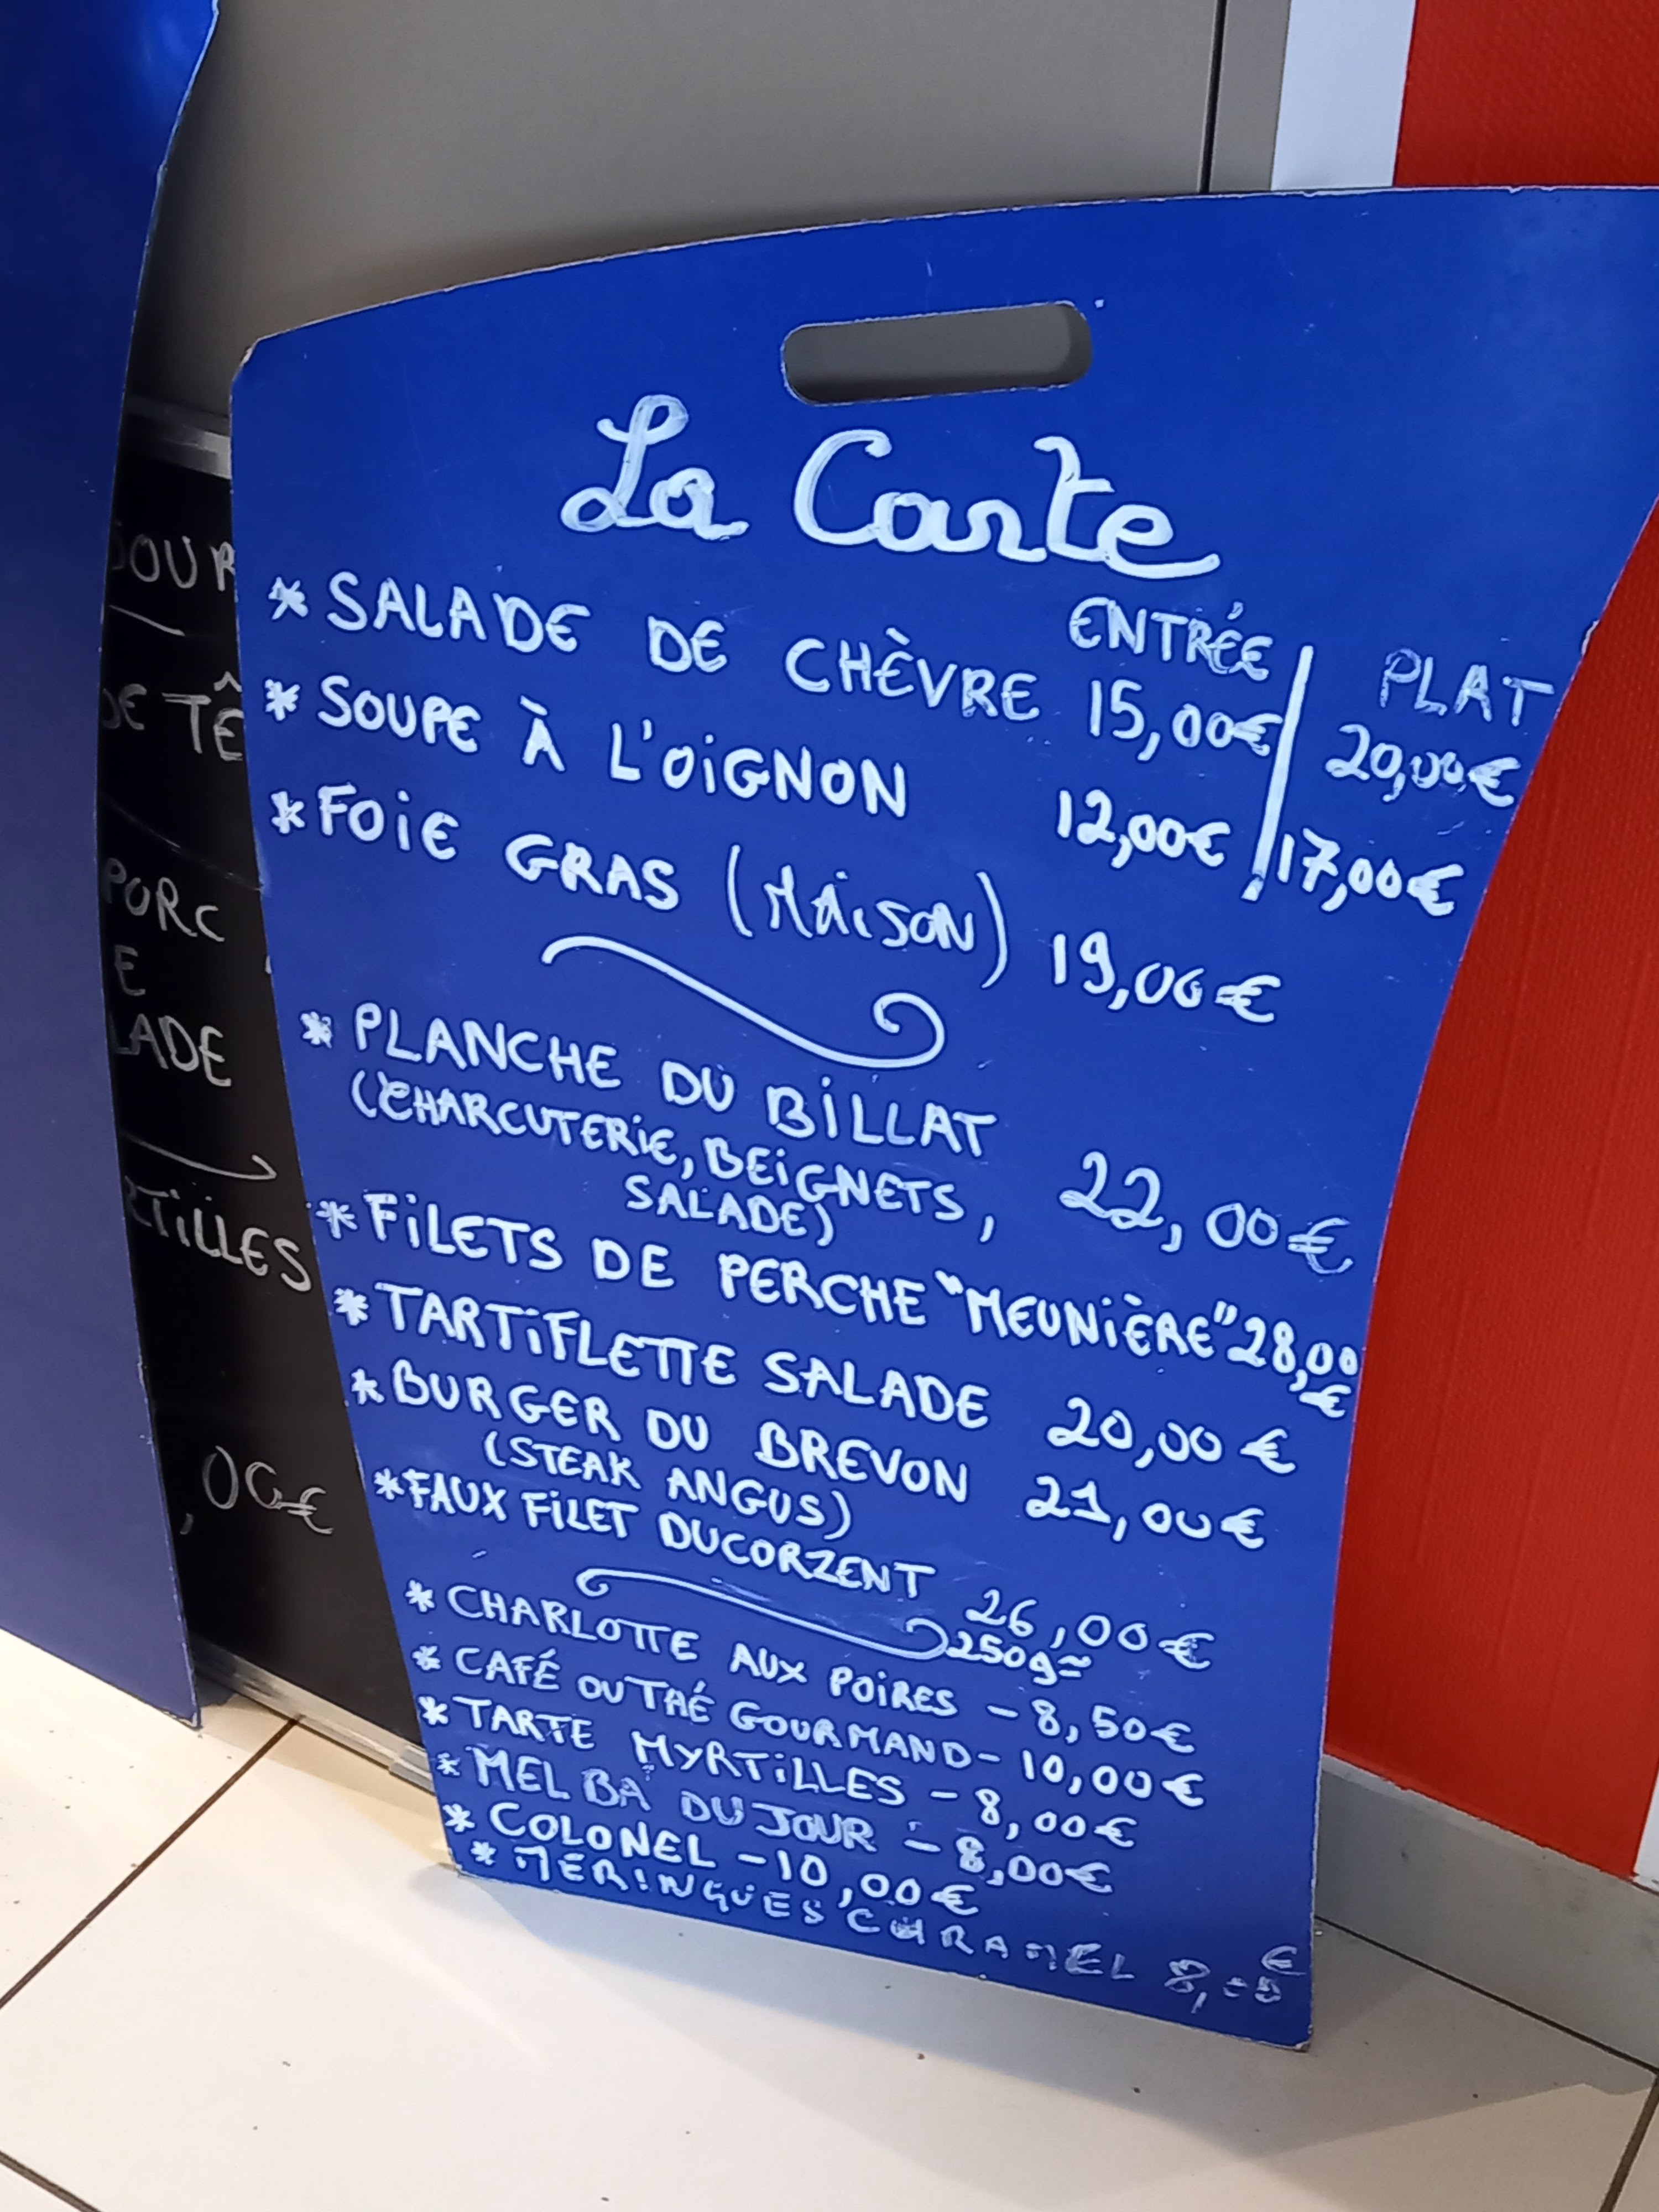 La Carte
ENTRÉE / PLAT
* SALADE DE CHÈVRE 15,00€ / 20,00€
* SOUPE À L'OIGNON 12,00€ / 17,00€
* FOIE GRAS (MAISON) 19,00€
* PLANCHE DU BILLAT
(CHARCUTERIE, BEIGNETS, 22,00€
SALADE)
* FILETS DE PERCHE "MEUNIÈRE" 28,00
€
* TARTIFLETTE SALADE 20,00€
* BURGER DU BREVON 21,00€
(STEAK ANGUS)
* FAUX FILET DUCORZENT 26,00€
250g≈
* CHARLOTTE AUX POIRES - 8,50€
* CAFÉ OU THÉ GOURMAND - 10,00€
* TARTE MYRTILLES - 8,00€
* MELBA DU JOUR - 8,00€
* COLONEL - 10,00€
* MERINGUES CARAMEL 8,00€
JOUR
DE TÊ
PORC
E
LADE
RTILLES
,00€